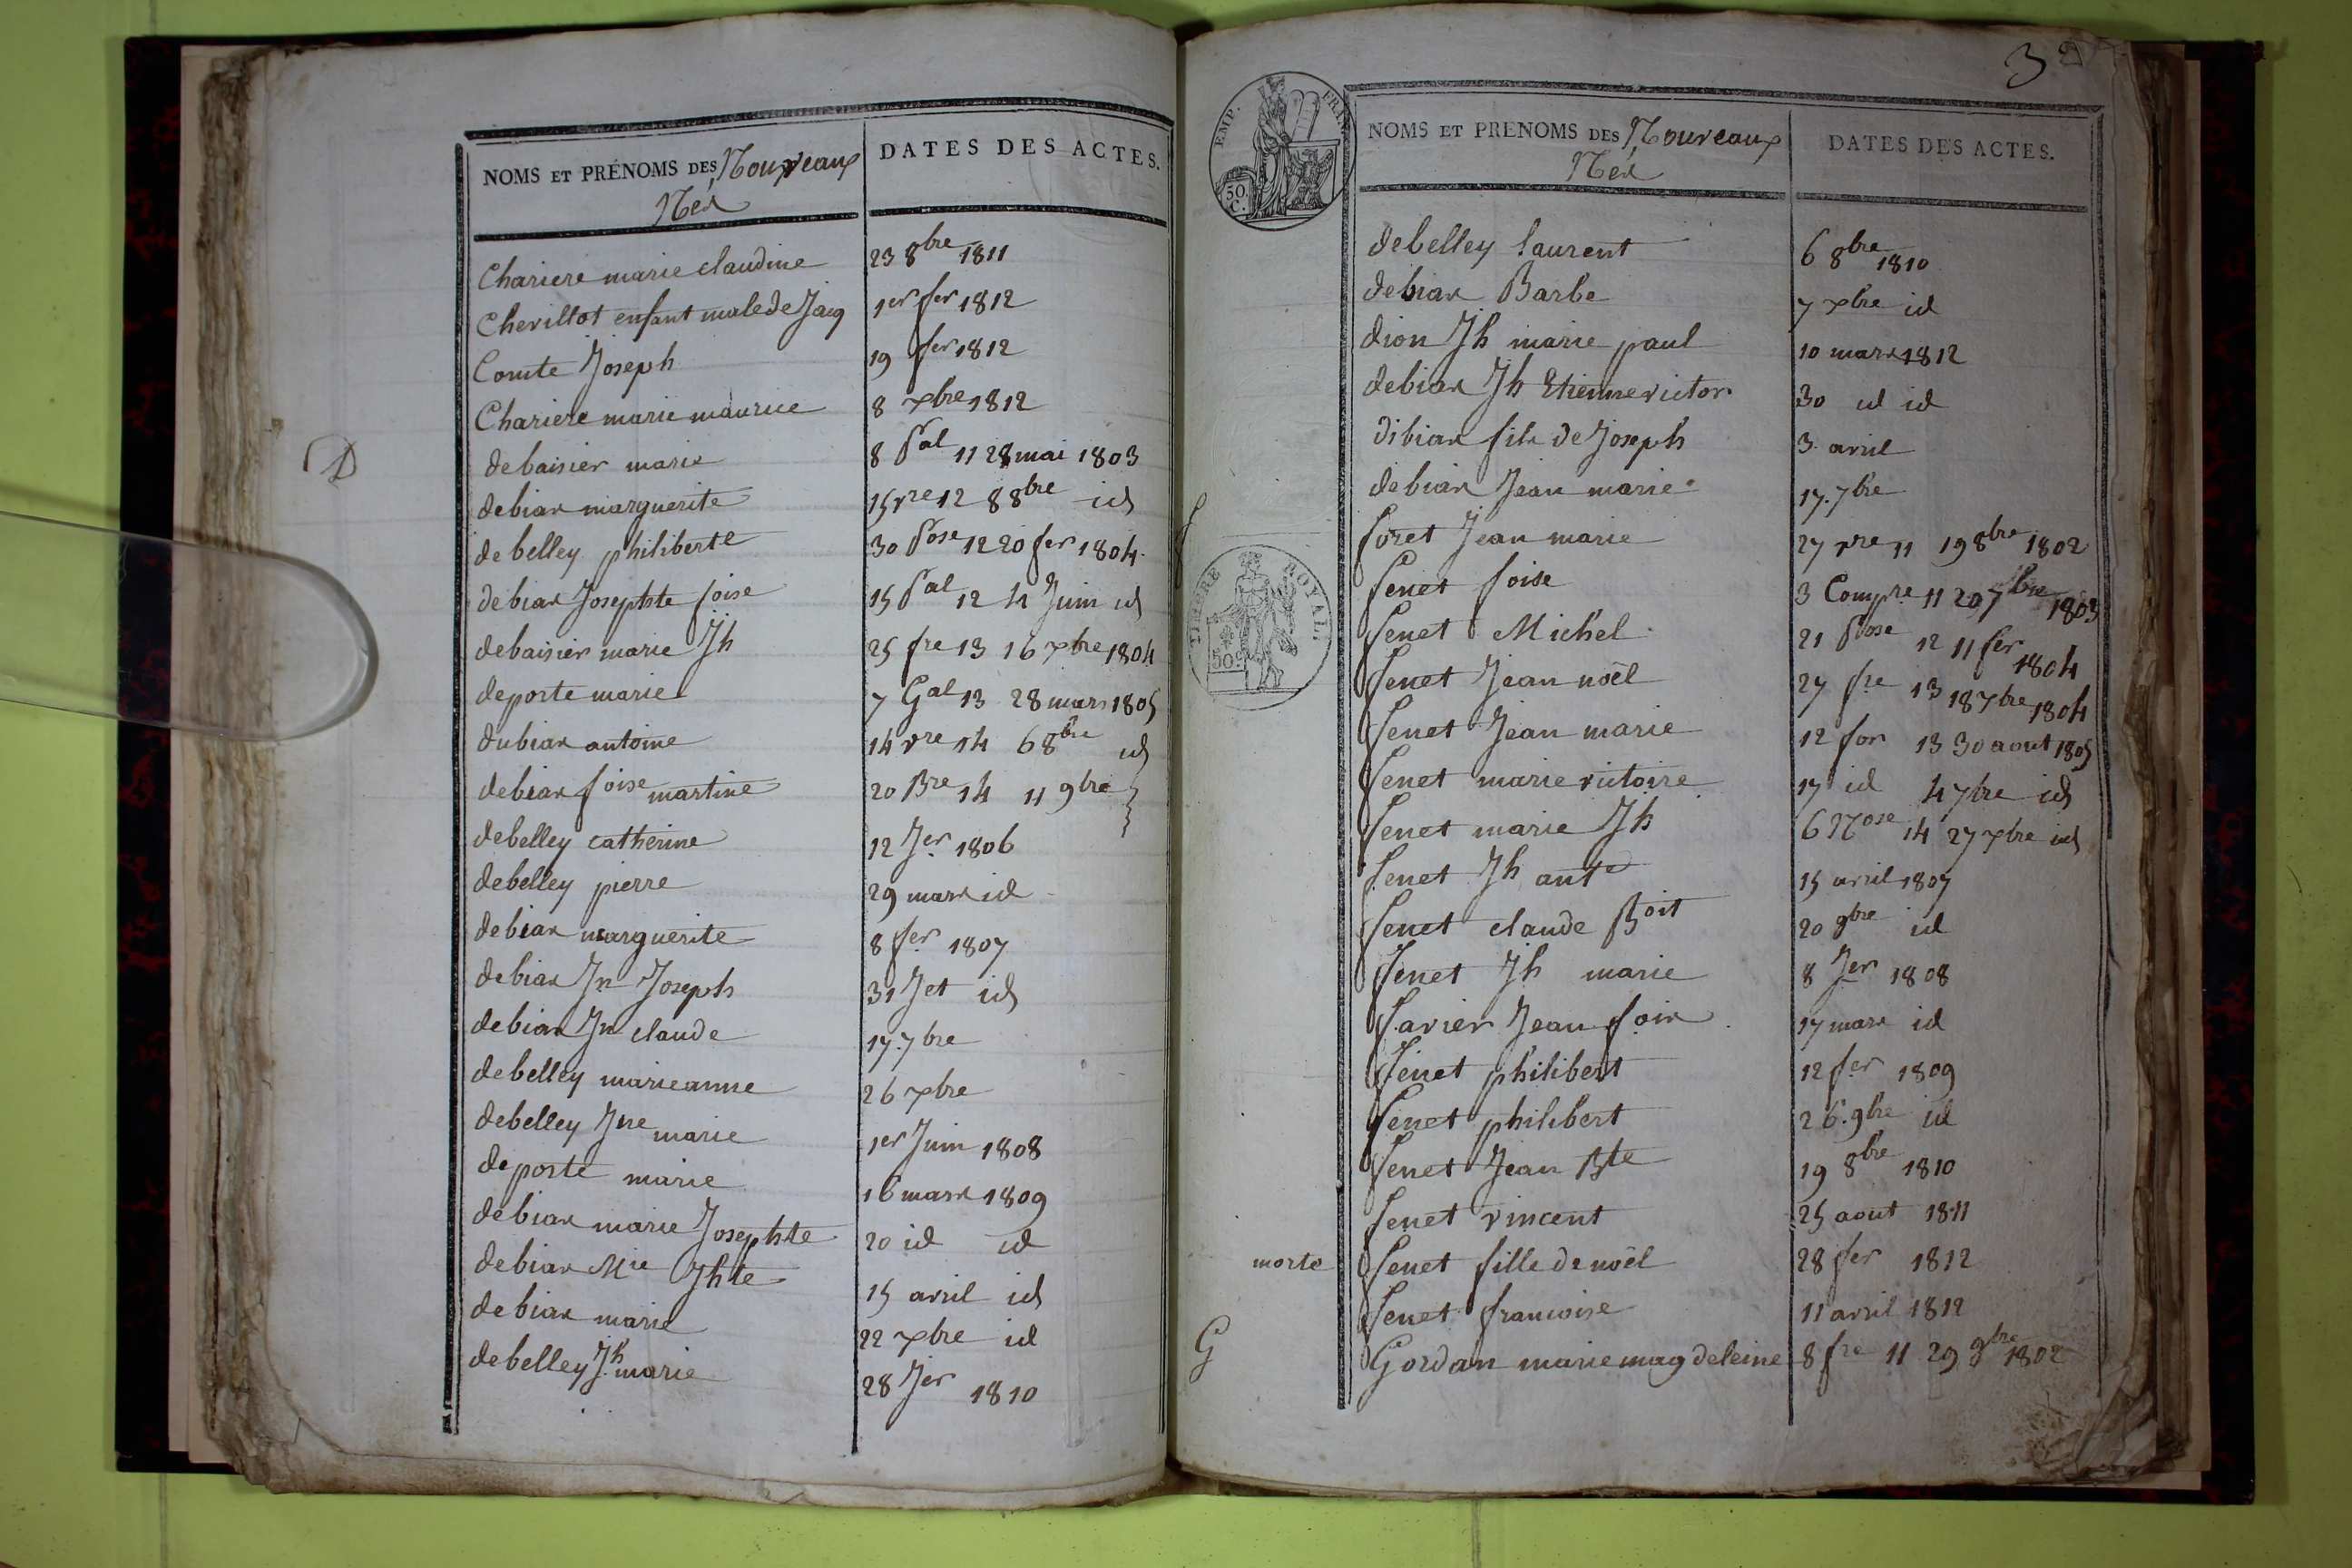 NOMS ET PRÉNOMS DES Nouveaux DATES DES ACTES.
Nés
Chariere marie claudine 23 8bre 1811
Chevillot enfant male de Jacq 1er fer 1812
Comte Joseph 19 fer 1812
Chariere marie maurice 8 xbre 1812
D
debaisier marie 8 Pal 11 28 mai 1803
debias marguerite 15 vre 12 8 8bre id
debelley philiberte 30 Pose 12 20 fer 1804
debias Josephte foise 15 Pal 12 4 Juin id
debaisier marie Jh 25 fre 13 16 xbre 1804
deporte marie 7 Gal 13 28 mars 1805
dubias antoine 14 vre 14 6 8bre id
debias foise martine 20 Bre 14 11 9bre
debelley catherine 12 Jer 1806
debelley pierre 29 mars id
debias marguerite 8 fer 1807
debias Jn Joseph 31 Jet id
debias Jn claude 17. 7bre
debelley marieanne 26 xbre
debelley Jne marie 1er Juin 1808
deporte marie 16 mars 1809
debias marie Josephte 20 id id
debias Mie Jhte 15 avril id
debias marie 22 xbre id
debelley Jh marie 28 Jer 1810
EMP. FRAN
50. C.
NOMS ET PRENOMS DES Nouveaux DATES DES ACTES.
Nés
debelley laurent 6 8bre 1810
debias Barbe 7 xbre id
dion Jh marie paul 10 mars 1812
debias Jh Etienne victor 30 id id
dibias fils de Joseph 3 avril
debias Jean marie 17. 7bre
f
foret Jean marie 27 vre 11 19 8bre 1802
TIMBRE ROYAL
50c
fenet foise 3 Compre 11 20 7bre 1803
fenet Michel 21 Pose 12 11 fer 1804
fenet Jean noël 27 fre 13 18 7bre 1804
fenet Jean marie 12 for 13 30 aout 1805
fenet marie victoire 17 id 4 7bre id
fenet marie Jh 6 Nose 14 27 xbre id
fenet Jh ante 15 avril 1807
fenet claude Boit 20 9bre id
fenet Jh marie 8 Jer 1808
favier Jean fois 17 mars id
fenet philibert 12 fer 1809
fenet philibert 26. 9bre id
fenet Jean Bte 19 8bre 1810
fenet vincent 25 aout 1811
morte fenet fille de noël 28 fer 1812
fenet francoise 11 avril 1812
G
Gordan marie magdeleine 8 fre 11 29 9bre 1802